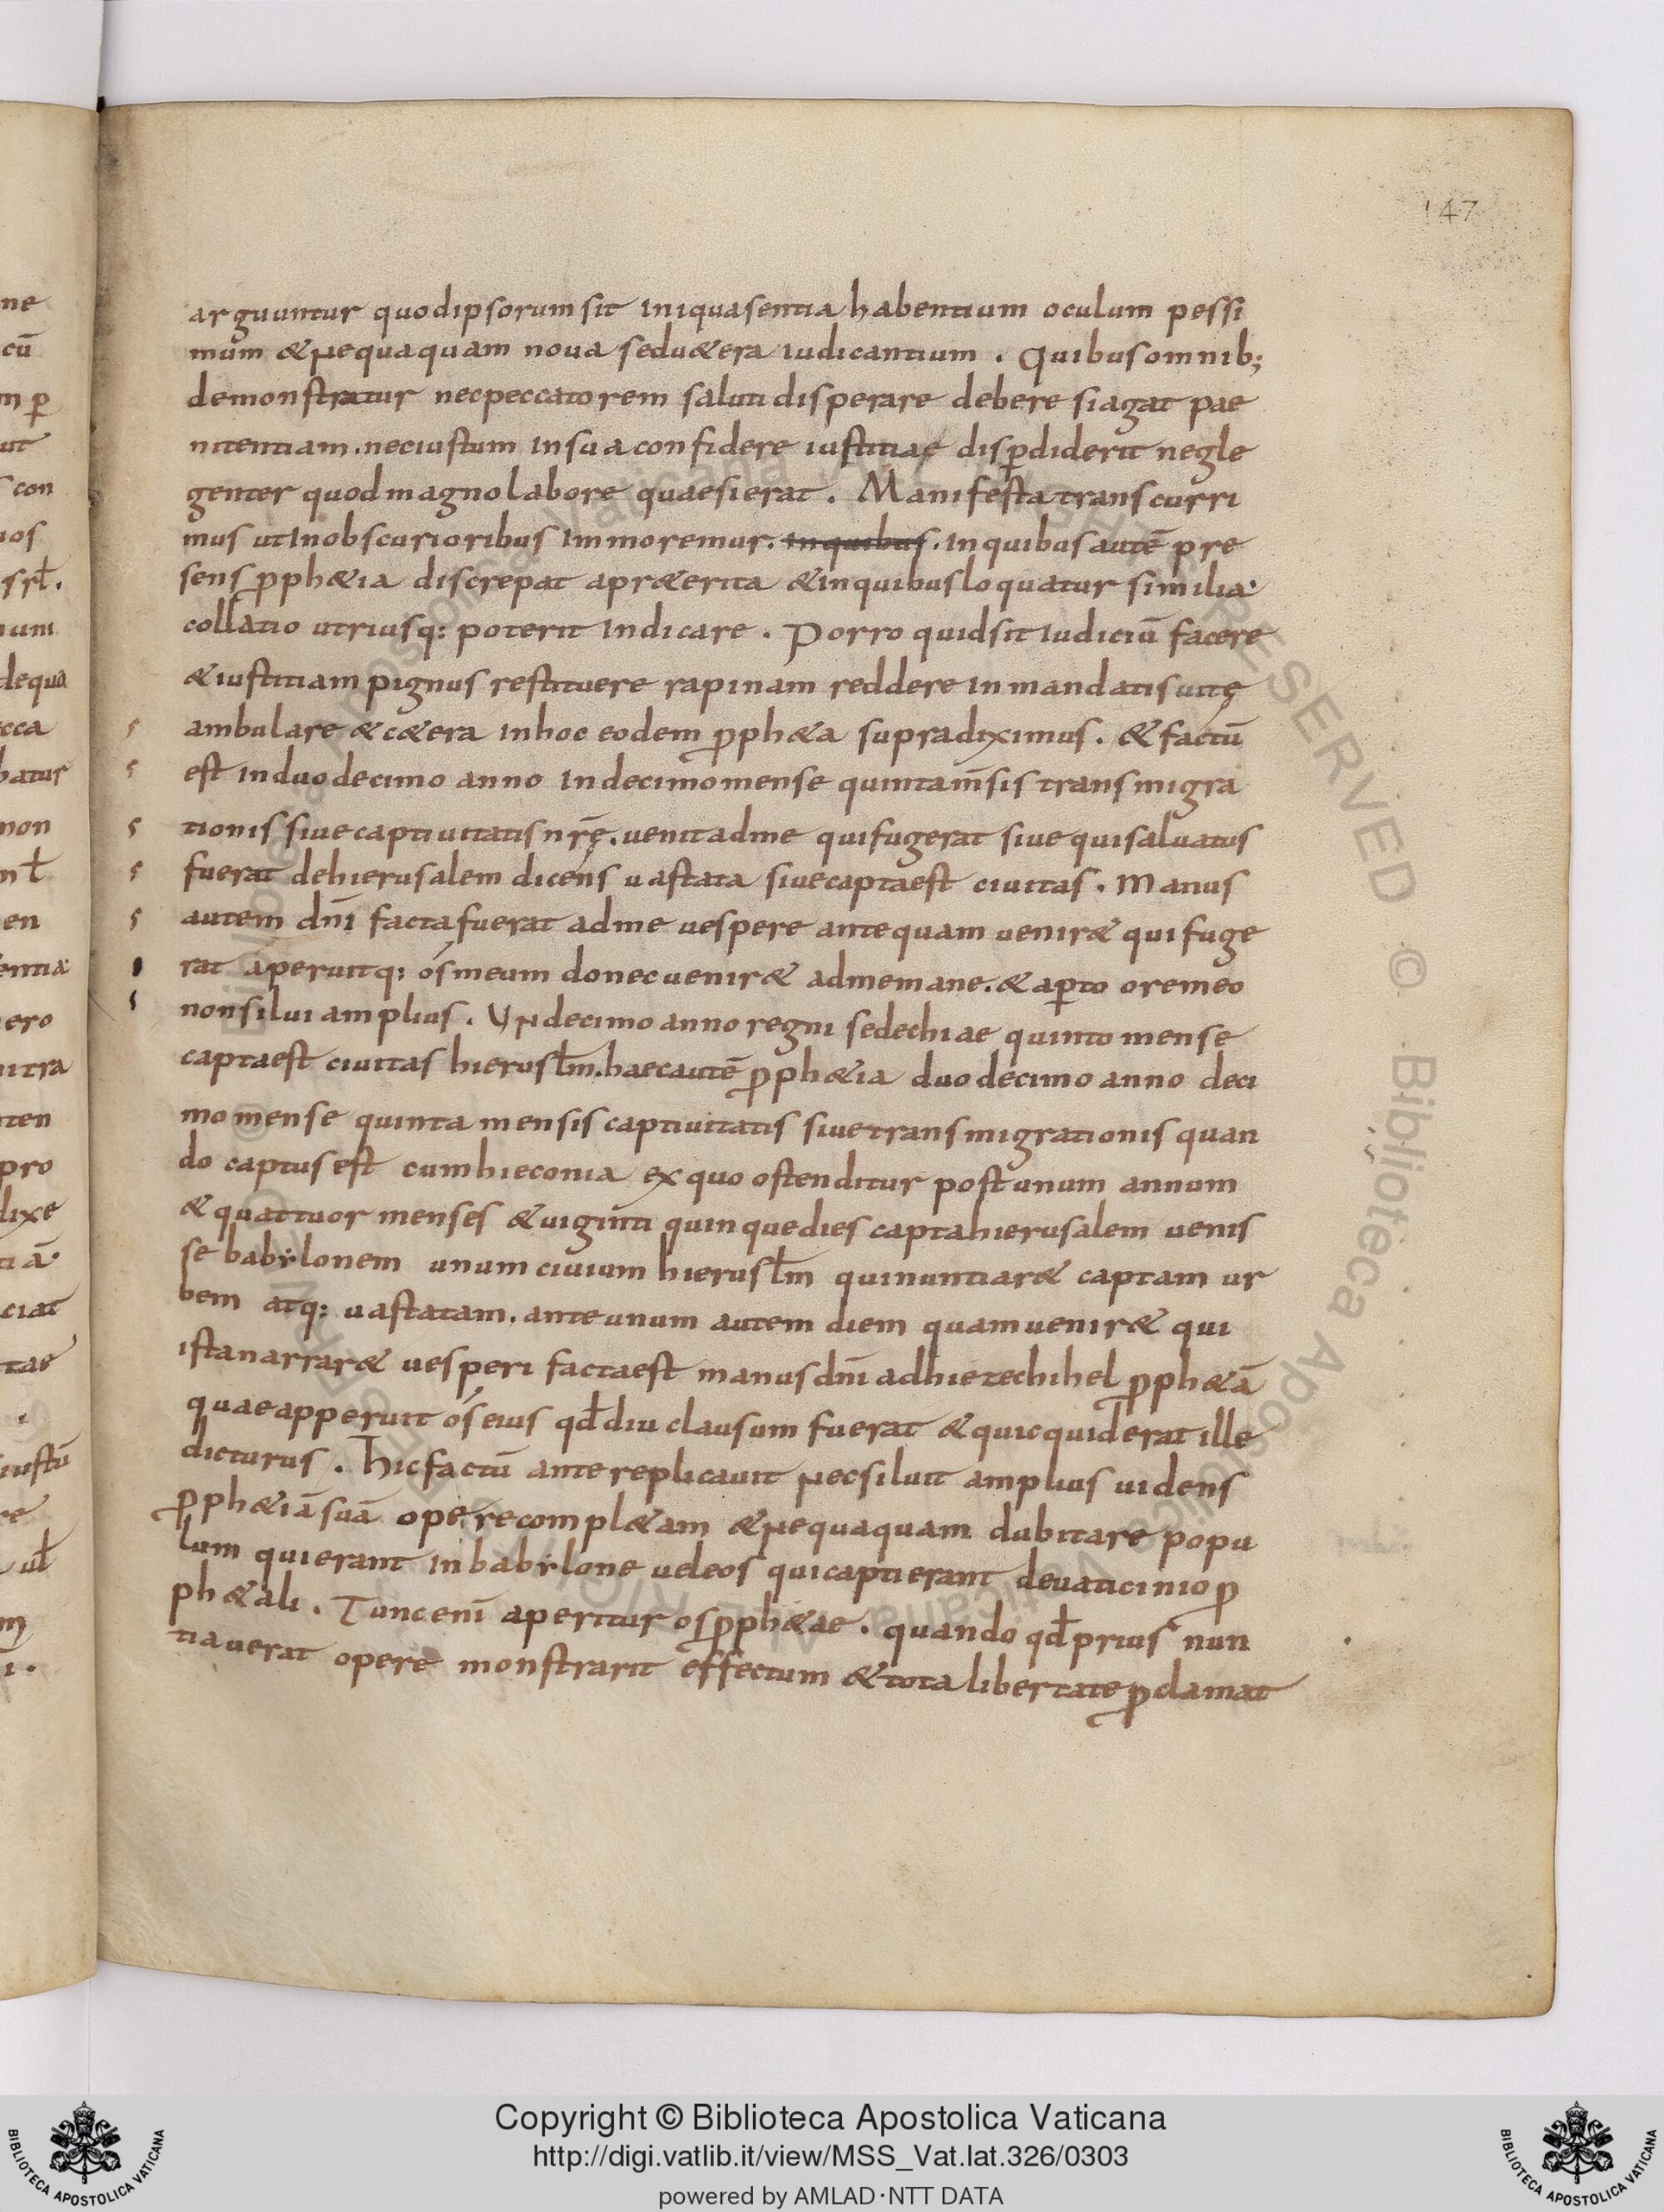 147
arguuntur quod ipsorum sit iniqua sentia habentium oculum pessi
mum & nequaquam noua sed u&era iudicantium . Quibus omnib;
demonstratur nec peccatorem saluti disperare debere si agat pae
nitentiam . nec iustum in sua confidere iustitiae disꝑdiderit negle
genter quod magno labore quaesierat . Manifesta transcurri
mus ut in obscurioribus immoremur . in quibus . In quibus autē pre
sens ꝓph&ia discrepat a pr&erita & in quibus loquatur similia·
collatio utriusq: poterit indicare . Porro quid sit iudiciū facere
& iustitiam pignus restituere rapinam reddere in mandatis uitę
ambulare & c&era in hoc eodem ꝓph&a supra diximus . & factū
est in duodecimo anno in decimo mense quinta m̄sis transmigra
tionis siue captiuitatis nr̄ę . uenit ad me qui fugerat siue qui saluatus
fuerat de hierusalem dicens uastata siue capta est ciuitas . Manus
autem dn̄i facta fuerat ad me uespere antequam uenir& qui fuge
rat aperuitq: ós meum donec uenir& ad me mane . & aꝑto ore meo
non silui amplius . Undecimo anno regni sedechiae quinto mense
capta est ciuitas hierusl̄m . haec autē ꝓph&ia duodecimo anno deci
mo mense quinta mensis captiuitatis siue transmigrationis quan
do captus est cum hieconia ex quo ostenditur post unum annum
& quattuor menses & uiginti quinque dies capta hierusalem uenis
se babylonem unum ciuium hierusl̄m qui nuntiar& captam ur
bem atq: uastatam . ante unum autem diem quam uenir& qui
ista narrar& uesperi facta est manus dn̄i ad hiezechihel ꝓph&ā
quae apperuit ós eius qđ diu clausum fuerat & quicquid erat ille
dicturus . hic factū ante replicauit nec siluit amplius uidens
ꝓph&iā suā opere compl&am & nequaquam dubitare popu
lum qui erant in babylone uel eos qui capti erant de uaticinio ꝓ
ph&ali . Tunc enī aperitur os ꝓph&ae . quando qđ prius nun
tiauerat opere monstrarit effectum & tota libertate ꝓclamat
Copyright © Biblioteca Apostolica Vaticana
http://digi.vatlib.it/view/MSS_Vat.lat.326/0303
powered by AMLAD·NTT DATA
BIBLIOTECA APOSTOLICA VATICANA
BIBLIOTECA APOSTOLICA VATICANA